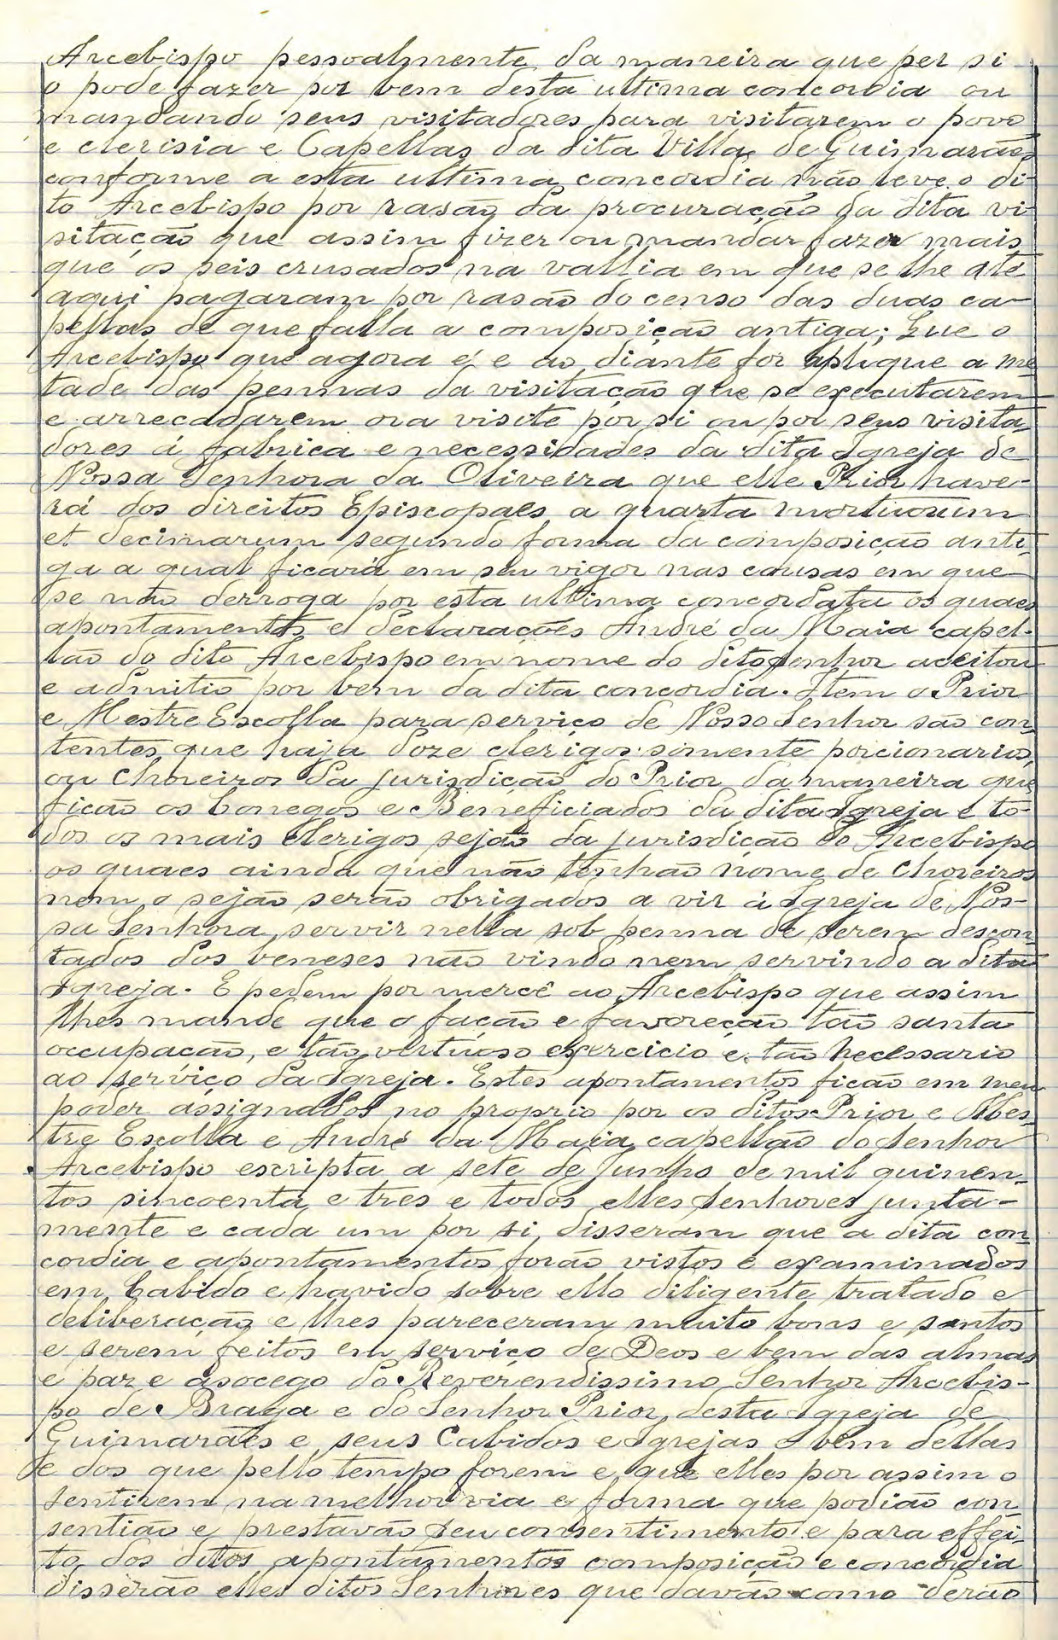 Arcebispo pessoalmente da maneira que per si
o pode fazer por bem desta ultima concordia ou
mandando seus visitadores para visitarem o povo
e clerisia e Capellas da dita Villa de Guimarães
conforme a esta ultima concordia não leve o di-
to Arcebispo por rasão da procuração da dita vi-
sitação que assim fizer ou mandar fazer mais
que os seis crusados na vallia em que se lhe até
aqui pagaram por rasão do censo das duas ca-
pellas de que falla a composição antiga; Que o
Arcebispo que agora é e ao diante for aplique a me
tade das pennas da visitação que se executarem
e arrecadarem ora visite por si ou por seus visita
dores á fabrica e necessidades da dita Igreja de
Nossa Senhora da Oliveira que elle Prior have-
rá dos direitos Episcopaes a quarta mortuorum
et decimarum segundo forma da composição anti-
ga a qual ficará em seu vigor nas causas em que
se não derroga por esta ultima concordata os quaes
apontamentos e declarações André da Maia capel-
lão do dito Arcebispo em nome do dito Senhor aceitou
e admitio por bem da dita concordia. Item o Prior
e Mestre Escolla para serviço de Nosso Senhor são con-
tentes que haja doze clerigos somente porcionarios
ou Choreiros da jurisdição do Prior da maneira que
ficão os Conegos e Beneficiados da dita Igreja e to-
dos os mais clerigos sejão da jurisdição do Arcebispo
os quaes ainda que não tenhão nome de Choreiros
nem o sejão serão obrigados a vir á Igreja de Nos-
sa Senhora servir nella sob penna de serem descon
tados dos beneses não vindo nem servindo a dita
Igreja. E pedem por mercê ao Arcebispo que assim
lhes mande que o fação e favoreção tão santa
occupação, e tão vertuoso exercicio e tão necessario
ao serviço da Igreja. Estes apontamentos ficão em meu
poder assignados no proprio por os ditos Prior e Mes-
tre Escolla e André da Maia capellão do Senhor
Arcebispo escripta a sete de Junho de mil quinen-
tos sincoenta e tres e todos elles Senhores junta-
mente e cada um por si disseram que a dita con
cordia e apontamentos forão vistos e examinados
em Cabido e havido sobre ello diligente tratado e
deliberação e lhes pareceram muito bons e santos
e serem feitos em serviço de Deos e bem das almas
e paz e asocego do Reverendissimo Senhor Arcebis-
po de Braga e do Senhor Prior desta Igreja de
Guimarães e seus Cabidos e Igrejas e bem dellas
e dos que pello tempo forem e que elles por assim o
sentirem na melhor via e forma que podião con
sentião e prestavão seu consentimento e para effei-
to dos ditos apontamentos composição e concordia
disserão elles ditos Senhores que davão como derão